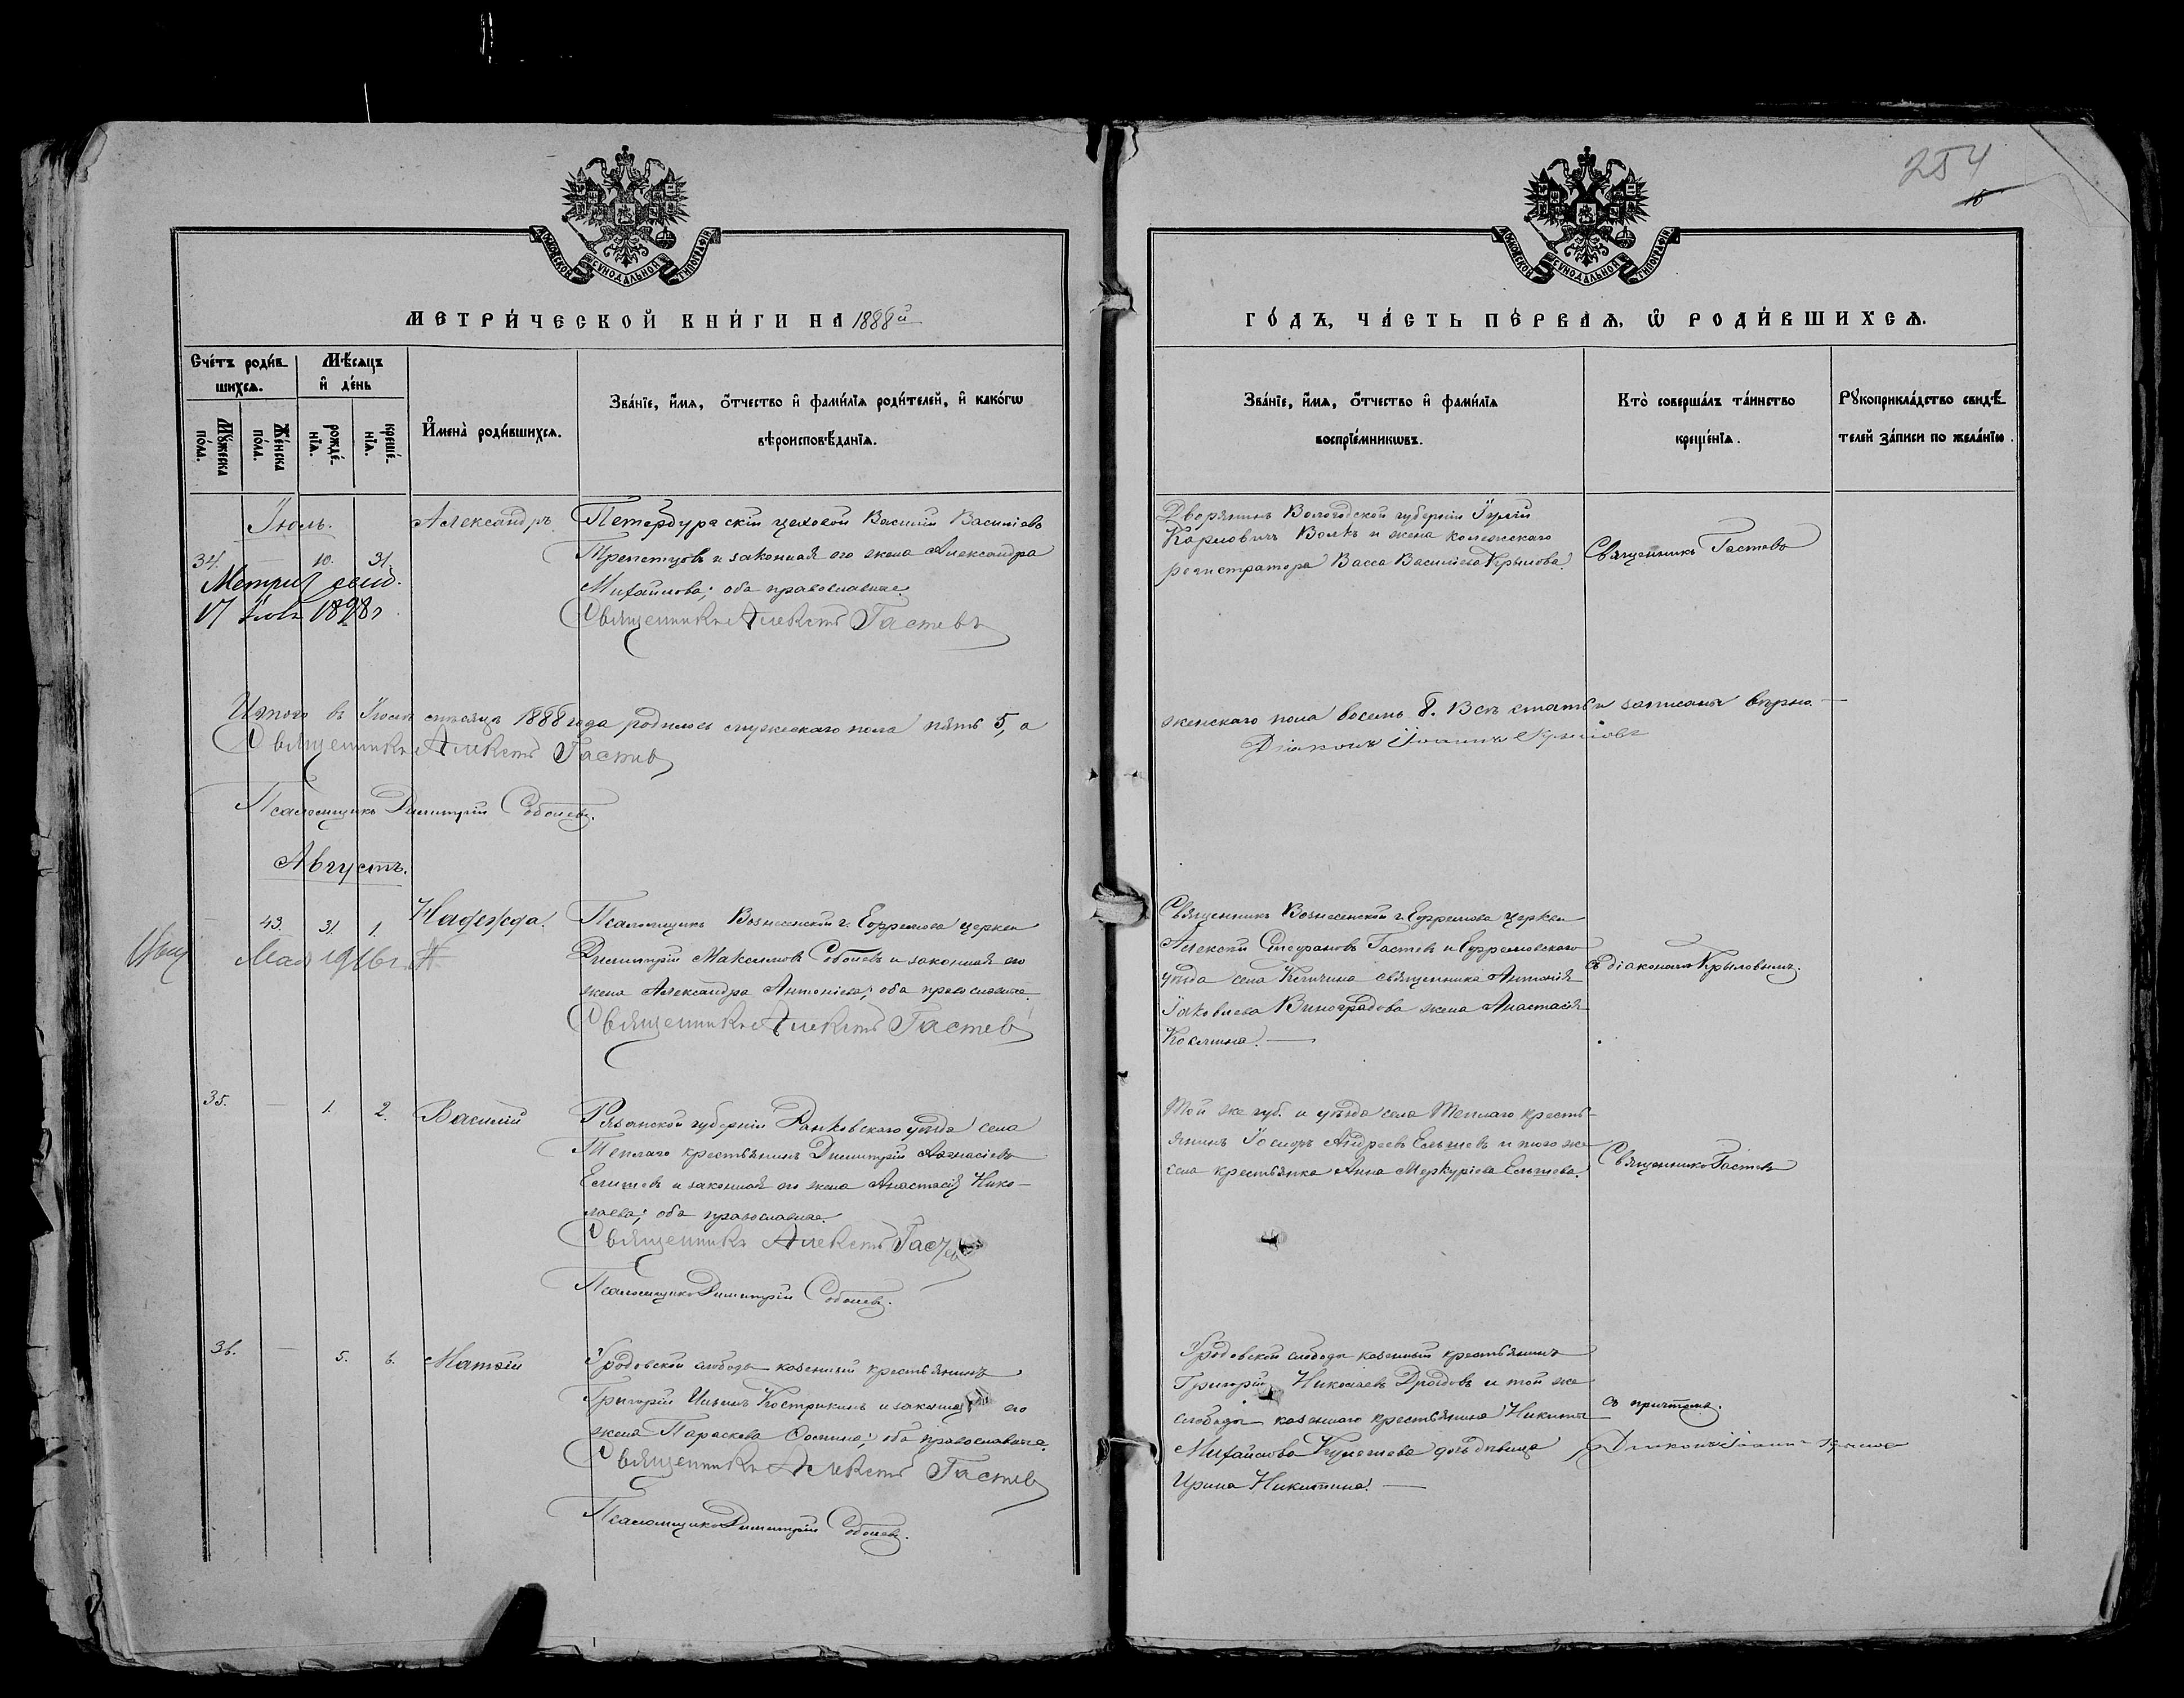 254
16
МОСКОВСКОЙ СУНОДАЛЬНОЙ ТИПОГРАФІИ
МОСКОВСКОЙ СУНОДАЛЬНОЙ ТИПОГРАФІИ
МЕТРИ́ЧЕСКОЙ КНИ́ГИ НА 1888й
ГО́ДЪ, ЧА́СТЬ ПЕ́РВАѦ, Ѡ҆ РОДИ́ВШИХСѦ.
Сче́тъ роди́в-
шихсѧ.
Мѣ́сѧцъ
и҆ де́нь
Мꙋ́жеска
по́ла.
Же́нска
по́ла.
рожде́-
нїѧ.
креще́-
нїѧ.
И҆мена̀ роди́вшихсѧ.
Зва́нїе, и҆́мѧ, ѻ҆́тчество и҆ фами́лїѧ роди́телей, и҆ како́гѡ
вѣроисповѣ́данїѧ.
Зва́нїе, и҆́мѧ, ѻ҆́тчество и҆ фами́лїѧ
воспрїе́мникѡвъ.
Кто̀ соверша́лъ та́инство
креще́нїѧ.
Рꙋкоприкла́дство свидѣ́-
телей за́писи по жела́нїю.
Іюль.
34. — 10. 31.
Александръ
Петербургскій цеховой Василій Васильевъ
и законная его жена Александра
Михайлова; оба православные.
Священникъ Алексѣй Гастевъ
Дворянинъ Вологодской губерніи Юлій
Карловичъ и жена коллежскаго
регистратора Васса Васильева Крылова.
Священникъ Гастевъ
17 1898г
Итого въ Іюлѣ мѣсяцѣ 1888 года родилось мужескаго пола пять 5, а
женскаго пола восемь 8. Всѣ статьи записаны вѣрно. —
Священникъ Алексѣй Гастевъ
Діаконъ Іоаннъ Крыловъ
Псаломщикъ Димитрій Соболевъ.
Августъ.
— 43. 31. 1.
Мая 1916г.
Надежда.
Псаломщикъ Вознесенской г. Ефремова церкви
Димитрій Максимовъ Соболевъ и законная его
жена Александра Антоніева; оба православные.
Священникъ Алексѣй Гастевъ
Священникъ Вознесенской г. Ефремова церкви
Алексѣй Стефановъ Гастевъ и Ефремовскаго
уѣзда села священника Антонія
Іаковлева Виноградова жена Анастасія
Космина. —
съ діакономъ Крыловымъ.
35. — 1. 2.
Василій
Рязанской губерніи Ранковскаго уѣзда села
Теплаго крестьянинъ Димитрій
и законная его жена Анастасія Нико-
лаева; оба православные.
Священникъ Алексѣй Гастевъ
Псаломщикъ Димитрій Соболевъ.
Той же губ. и уѣзда села Теплаго кресть-
янинъ Іосифъ Андреевъ и того же
села крестьянка Анна Меркуріева
Священникъ Гастевъ
36. — 5. 6.
Матѳій
слободы казенный крестьянинъ
Григорій Ильинъ Кострикинъ и законная его
жена Параскева; оба православные.
Священникъ Алексѣй Гастевъ
Псаломщикъ Димитрій Соболевъ.
слободы казенный крестьянинъ
Григорій Николаевъ Дроздовъ и той же
слободы казеннаго крестьянина Никиты
Михайлова дочь дѣвица
Ирина Никитина. —
съ причтомъ.
Діаконъ Іоаннъ Крыловъ